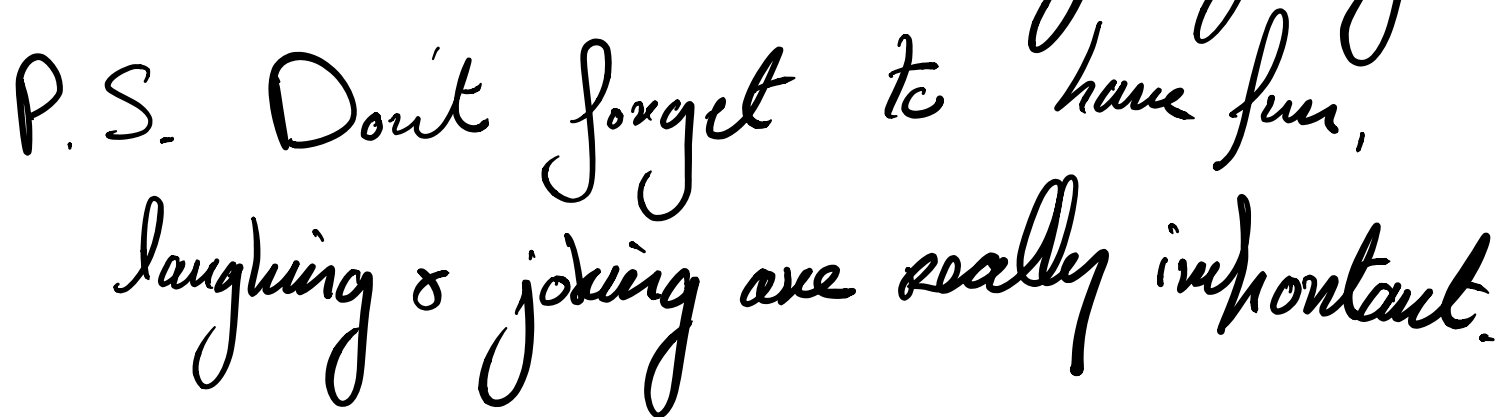 P.S. Don't forget to have fun,
laughing & joking are really important.